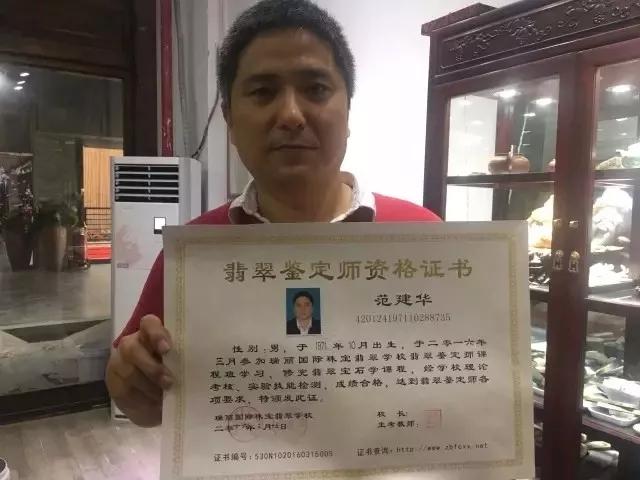 翡翠鉴定师资格证书
范建华
420124197110288735
性别:男,于1971年10月出生,于二零一六年
三月参加瑞丽国际珠宝翡翠学校翡翠鉴定师课
程班学习,修完翡翠宝石学课程,经学校理论
考核、实验技能检测,成绩合格,达到翡翠鉴定师各
项要求,特颁发此证。
瑞丽国际珠宝翡翠学校
校长:
主考教师:
证书编号:530N1020160315005
证书查询:http://www.zbfcxx.net